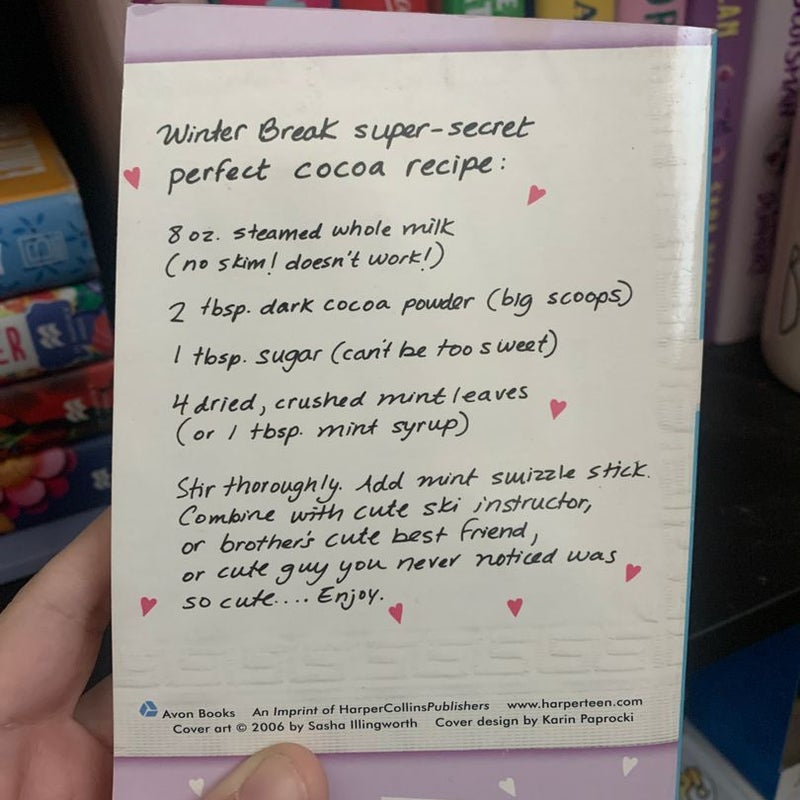 Winter Break super-secret
perfect cocoa recipe:
8 oz. steamed whole milk
(no skim! doesn't work!)
2 tbsp. dark cocoa powder (big scoops)
1 tbsp. sugar (can't be too sweet)
4 dried, crushed mint leaves
(or 1 tbsp. mint syrup)
Stir thoroughly. Add mint swizzle stick.
Combine with cute ski instructor,
or brother's cute best friend,
or cute guy you never noticed was
so cute.... Enjoy.
Avon Books An Imprint of HarperCollinsPublishers www.harperteen.com
Cover art © 2006 by Sasha Illingworth Cover design by Karin Paprocki